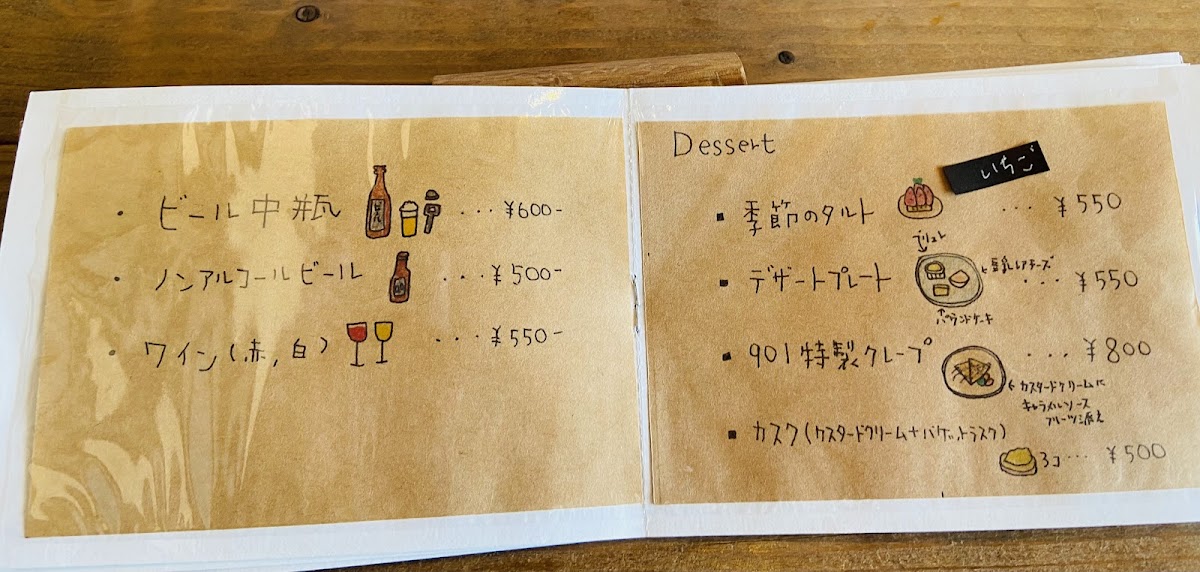 ・ビール中瓶 ・・・ ¥600-
・ノンアルコールビール ・・・ ¥500-
・ワイン(赤,白) ・・・ ¥550-
Dessert
いちご
▪季節のタルト ・・・ ¥550
ブリュレ
▪デザートプレート ・・・ ¥550
豆乳レアチーズ
パウンドケーキ
▪901特製クレープ ・・・ ¥800
カスタードクリームに
キャラメルソース
フルーツ添え
▪カスク(カスタードクリーム+バゲットラスク)
3コ・・・ ¥500